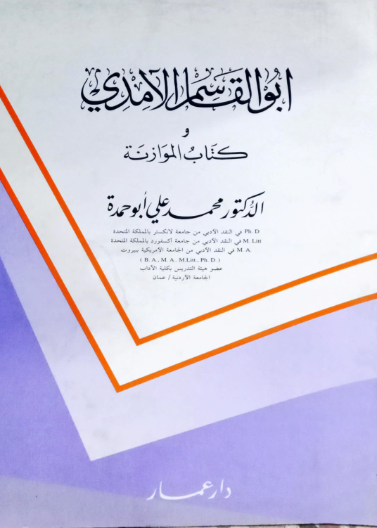 ابو القاسم الآمدي
و
كتاب الموازنة
الدكتور محمد علي أبو حمدة
Ph. D. في النقد الأدبي من جامعة لانكستر بالمملكة المتحدة
M. Litt. في النقد الأدبي من جامعة اكسفورد بالمملكة المتحدة
M. A. في النقد الأدبي من الجامعة الأمريكية ببيروت
( B. A., M. A. M.Litt., Ph. D. )
عضو هيئة التدريس بكلية الآداب
الجامعة الأردنية / عمان
دار عمار